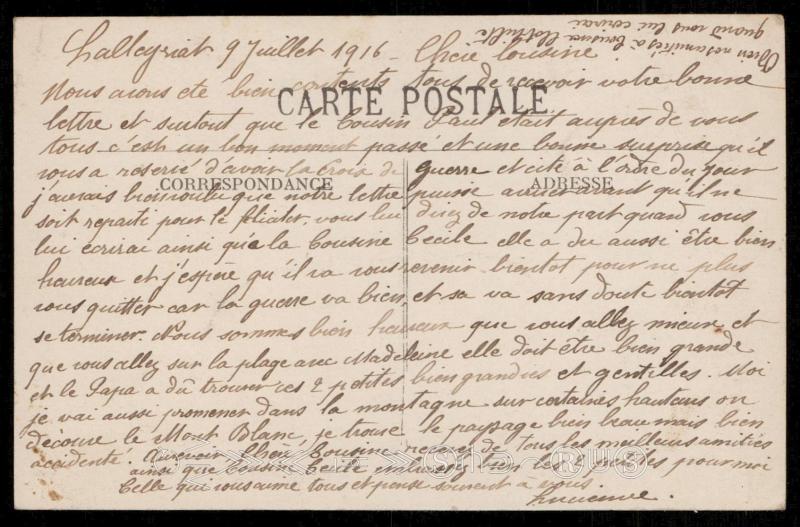 Bien nos amitiés à Cousine Clothilde
quand vous lui écrirai
Lalleyriat 9 Juillet 1916 - Chère Cousine
Nous avons été bien contents tous de recevoir votre bonne
CARTE POSTALE
lettre et surtout que le Cousin Paul était auprès de vous
tous c'est un bon moment passé et une bonne surprise qu'il
vous a reservé d'avoir la Croix de guerre et cité à l'ordre du jour
CORRESPONDANCE
ADRESSE
j'aurais bien voulu que notre lettre puisse arriver avant qu'il ne
soit reparti pour le vous lui direz de notre part quand vous
lui écrirai ainsi qu'a la Cousine Cécile elle a du aussi être bien
heureux et j'espère qu'il va vous revenir bientot pour ne plus
vous quitter car la guerre va bien et sa va sans doute bientot
se terminer. Nous sommes bien heureux que vous allez mieux et
que vous allez sur la plage avec Madeleine elle doit être bien grande
et le Papa a dû trouver ces 2 petites bien grandies et gentilles. Moi
je vai aussi promener dans la montagne sur certaines hauteurs on
découvre le Mont Blanc, je trouve le paysage bien beau mais bien
accidenté. Aurevoir Chère Cousine recevez de tous les meilleurs amitiés
ainsi que Cousine Cécile embrassez bien les pour moi
Celle qui vous aime tous et pense souvent à vous
Lucienne.